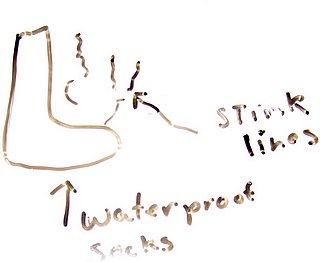 stink
lines
waterproof
socks